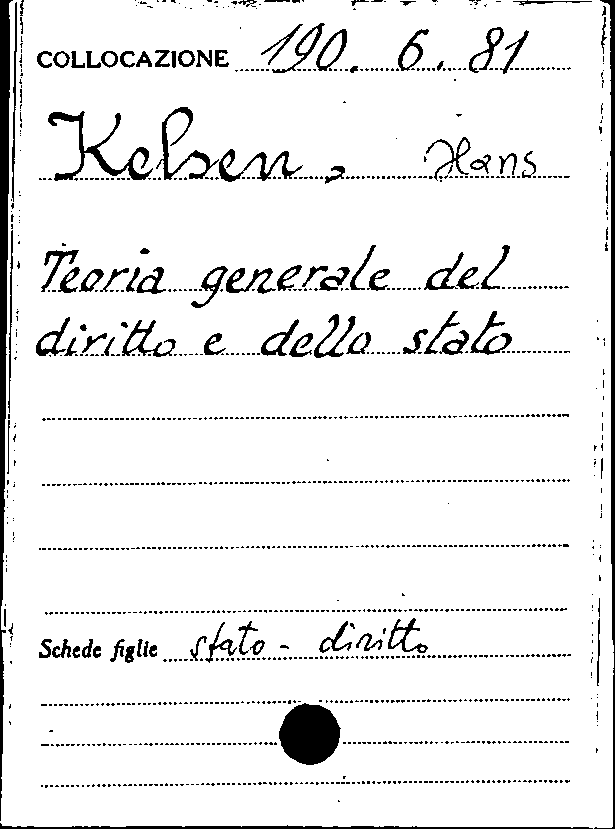 COLLOCAZIONE 190. 6. 81
Kelsen, Hans
Teoria generale del
diritto e dello stato
Schede figlie stato - diritto